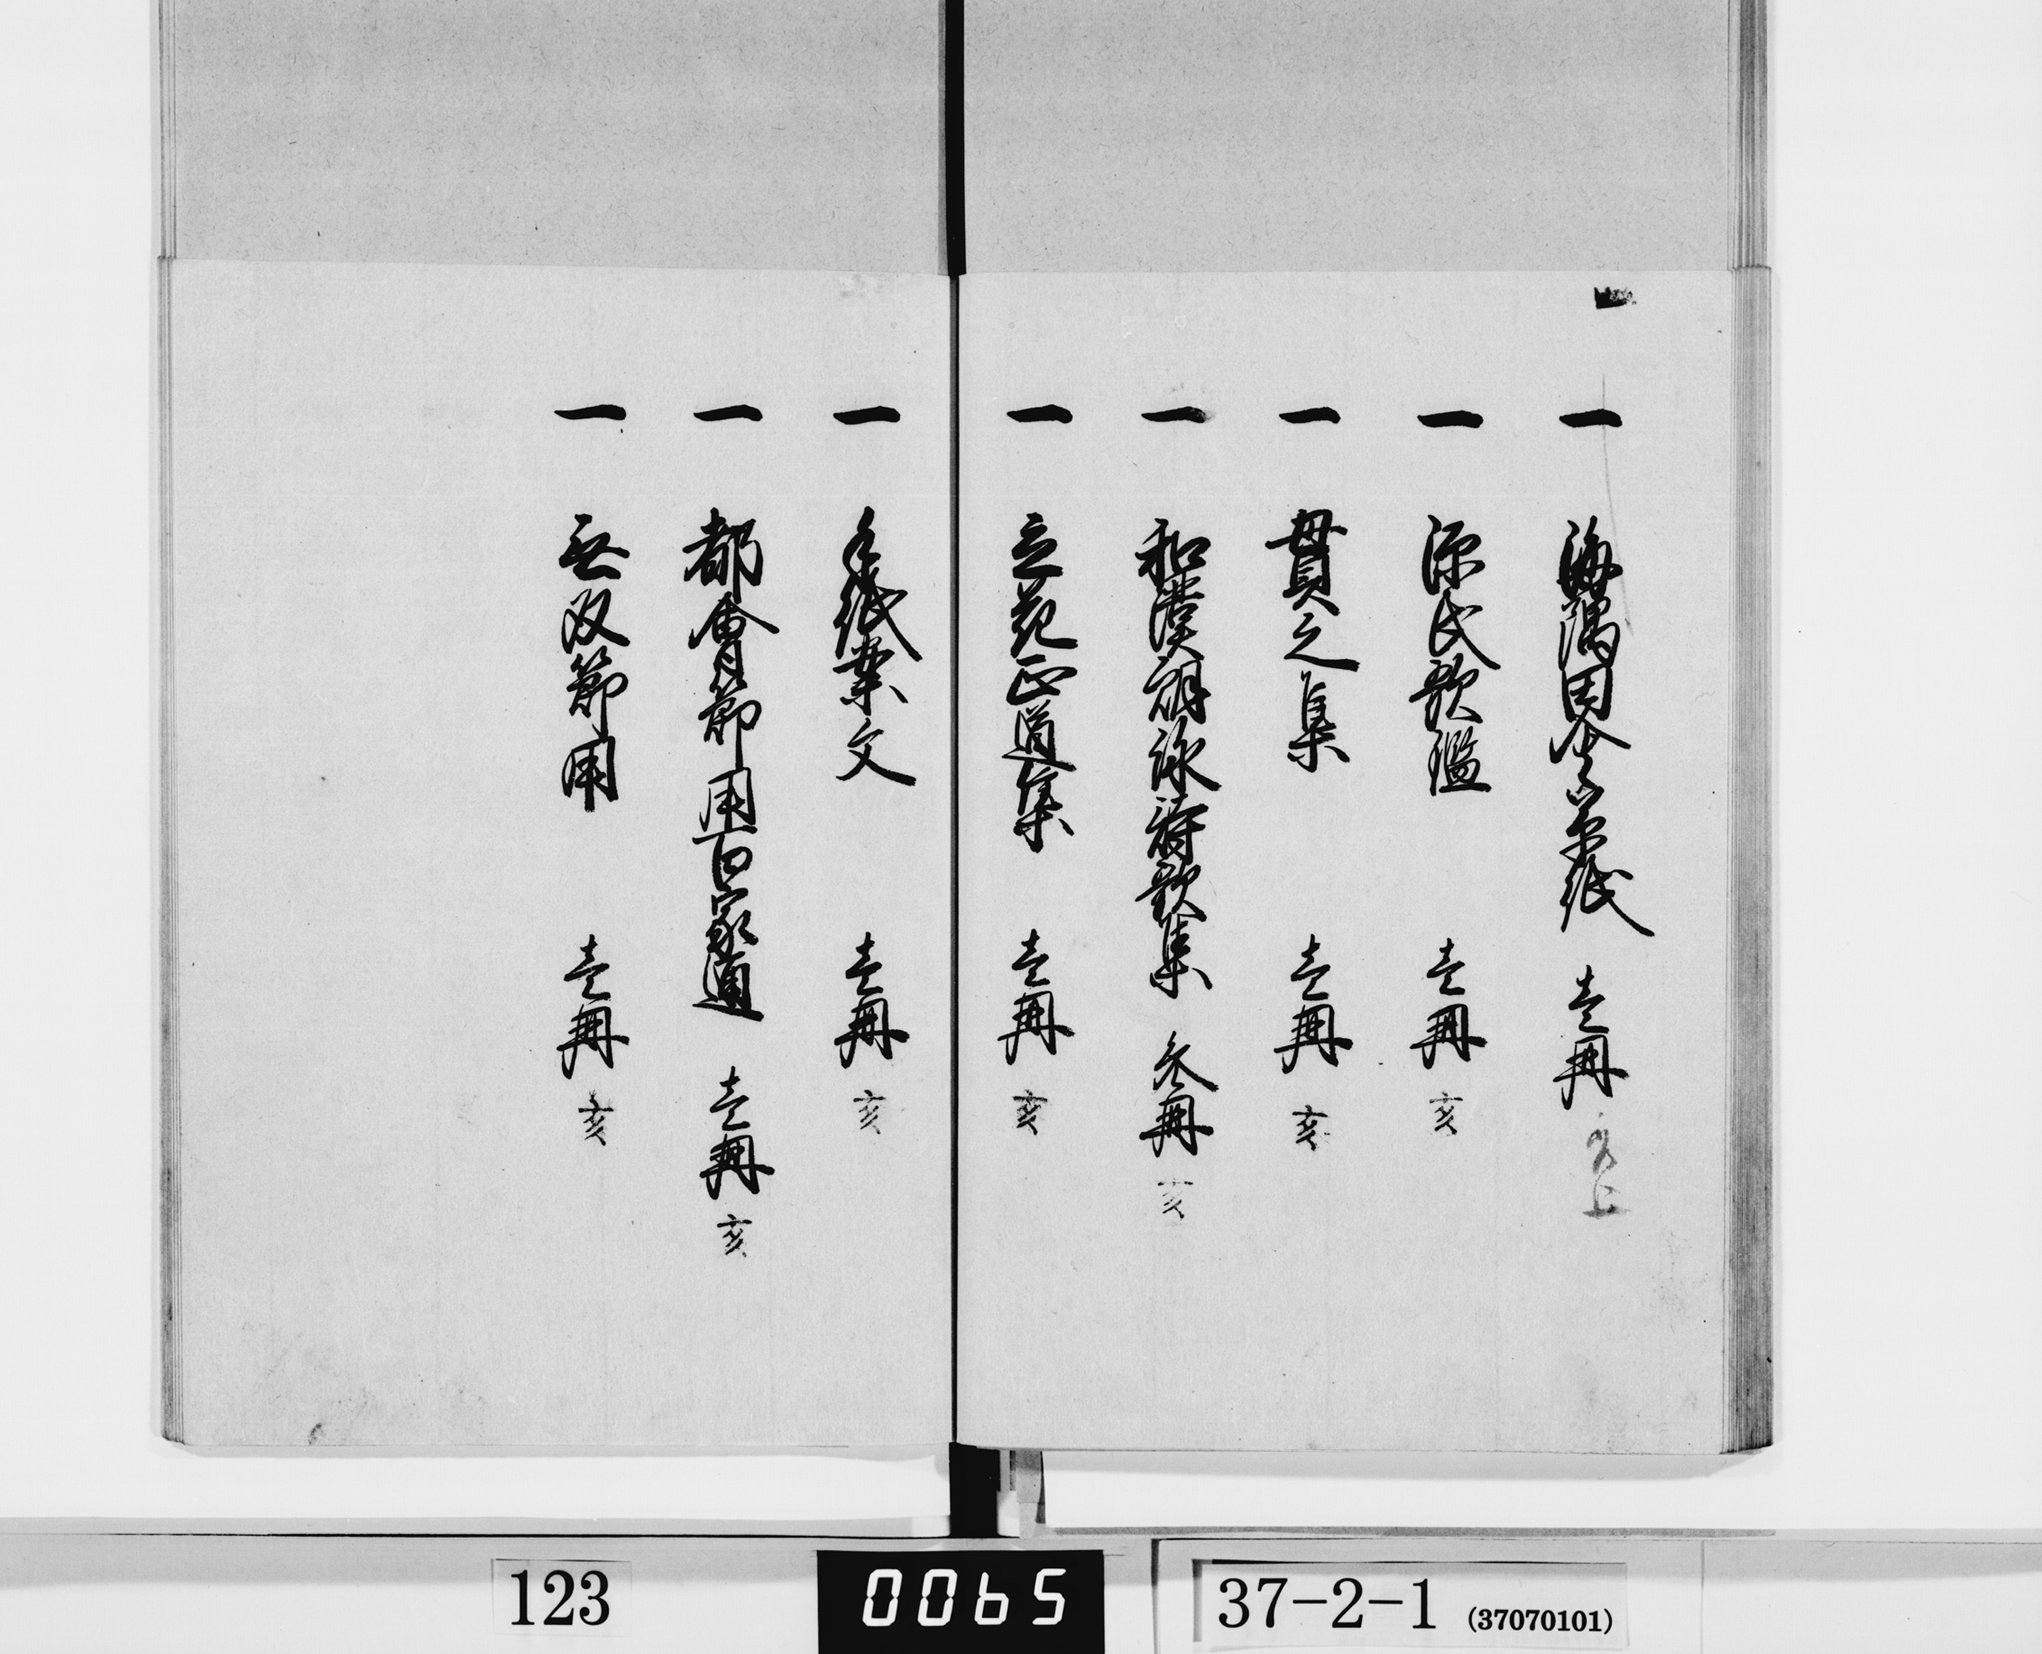 一 海隅因今草紙 壱冊
一 源氏歌鑑 壱冊 亥
一 貫之集 壱冊 亥
一 和漢朗詠詩歌集 弐冊 亥
一 立花正道集 壱冊 亥
一 手紙案文 壱冊 亥
一 都會節用百家通 壱冊 亥
一 無双節用 壱冊 亥
123
0065
37-2-1 (37070101)